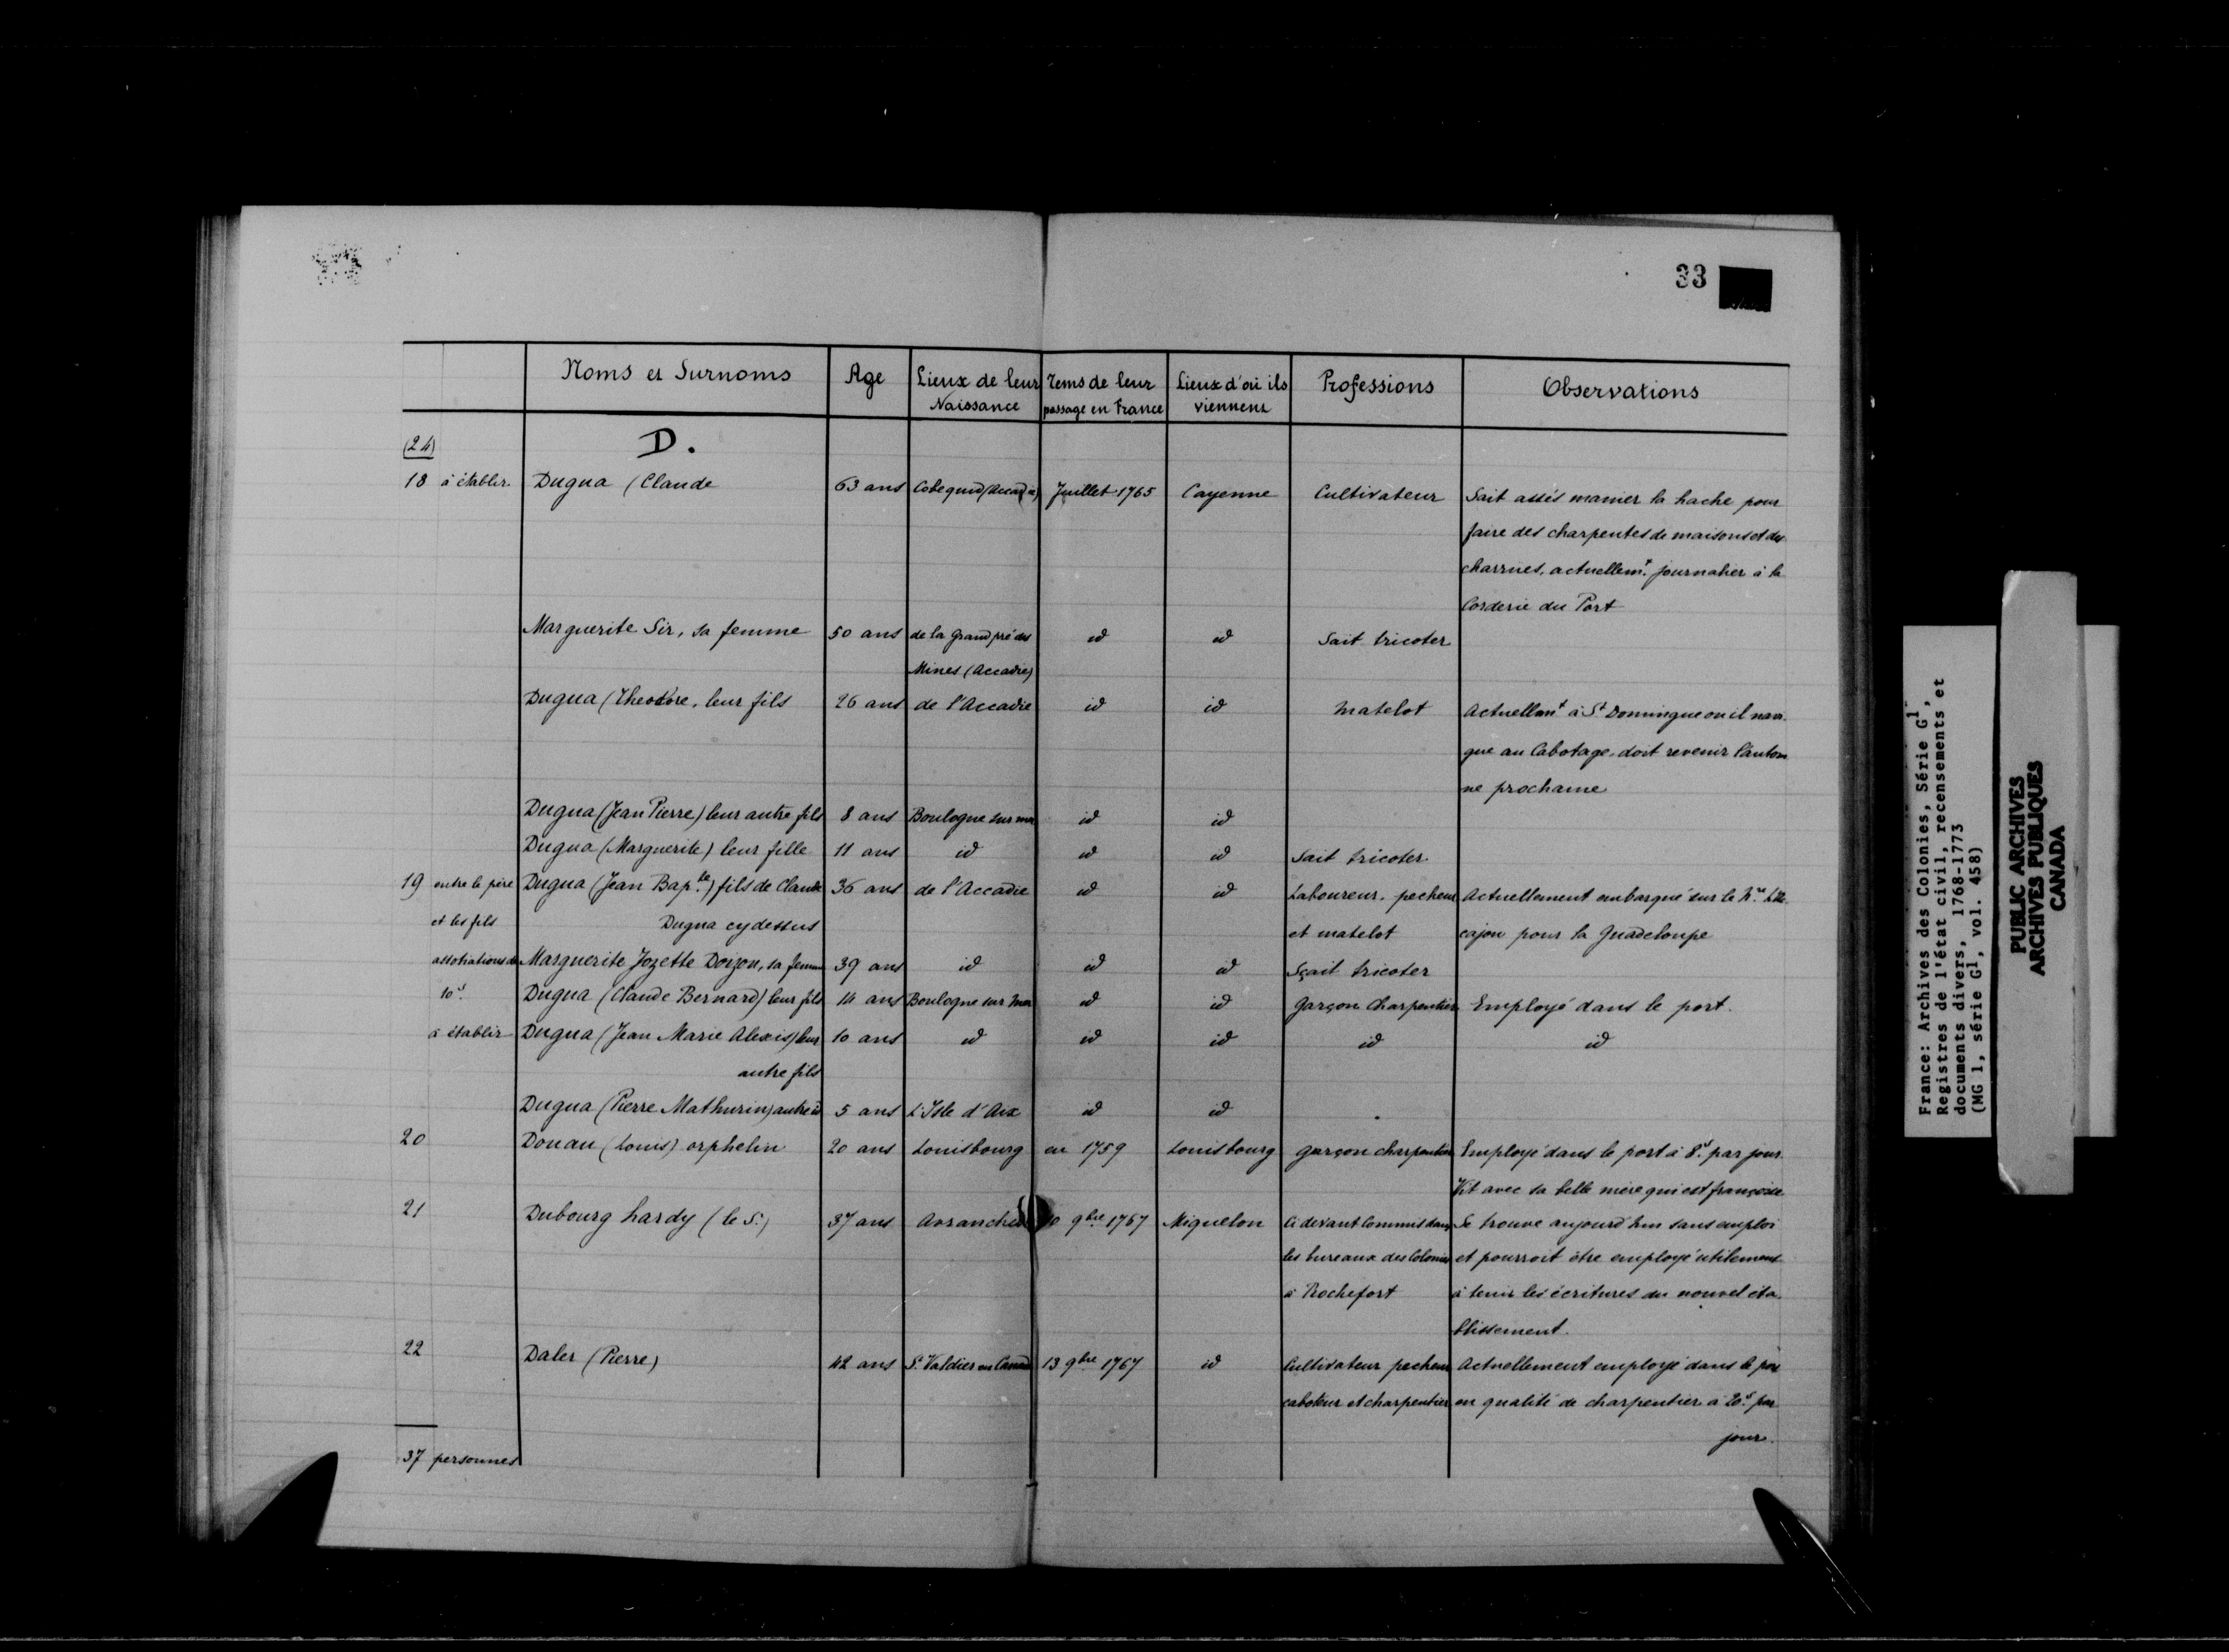 33
Noms et Surnoms | Age | Lieux de leur Naissance | Tems de leur passage en France | Lieux d'où ils viennent | Professions | Observations
(24)
D.
18 à établir. Dugua (Claude | 63 ans | Cobequid (Accadie) | Juillet 1765 | Cayenne | Cultivateur | Sait assés manier la hache pour
faire des charpentes de maisons et des
charrues, actuellemt. journalier à la
Corderie du Port
Marguerite Sir, sa femme | 50 ans | de la Grand pré des | id | id | Sait tricoter
Mines (Accadie)
Dugua (Theodore, leur fils | 26 ans | de l'Accadie | id | id | Matelot | Actuellemt à St Domingue ou il navi-
gue au Cabotage, doit revenir l'autom
ne prochaine
Dugua (Jean Pierre) leur autre fils | 8 ans | Boulogne sur mer | id | id
Dugua (Marguerite) leur fille | 11 ans | id | id | id | Sait tricoter
19 entre le père | Dugua (Jean Bap.te) fils de Claude | 36 ans | de l'Accadie | id | id | Laboureur, pecheur | Actuellement embarqué sur le
et les fils | Dugua cydessus | et matelot | cajou pour la Guadeloupe
Marguerite Jozette Doizon, sa femme | 39 ans | id | id | id | Sçait tricoter
10s. | Dugua (Claude Bernard) leur fils | 14 ans | Boulogne sur Mer | id | id | Garçon Charpentier | Employé dans le port.
à établir | Dugua (Jean Marie Alexis) leur | 10 ans | id | id | id | id | id
autre fils
Dugua (Pierre Mathurin) autre id | 5 ans | L'Isle d'Aix | id | id
20 | Douau (Louis) orphelin | 20 ans | Louisbourg | en 1759 | Louisbourg | garçon charpentier | Employé dans le port à 8s. par jour.
Vit avec sa belle mère qui est françoise
21 | Dubourg hardy (le S.) | 37 ans | Avranches | 9bre 1767 | Miquelon | Ci devant Commis dans | Se trouve aujourd'hui sans emploi
les bureaux des Colonies | et pourroit être employé utilement
à Rochefort | à tenir les écritures du nouvel éta
blissement.
22 | Daler (Pierre) | 42 ans | St. Valdier en Canada | 13 9bre 1767 | id | Cultivateur pecheur | Actuellement employé dans le port
caboteur et charpentier | en qualité de charpentier à 20s. par
jour.
37 personnes
France: Archives des Colonies, Série G1,
Registres de l'état civil, recensements et
documents divers, 1768-1773
(MG 1, série G1, vol. 458)
PUBLIC ARCHIVES
ARCHIVES PUBLIQUES
CANADA